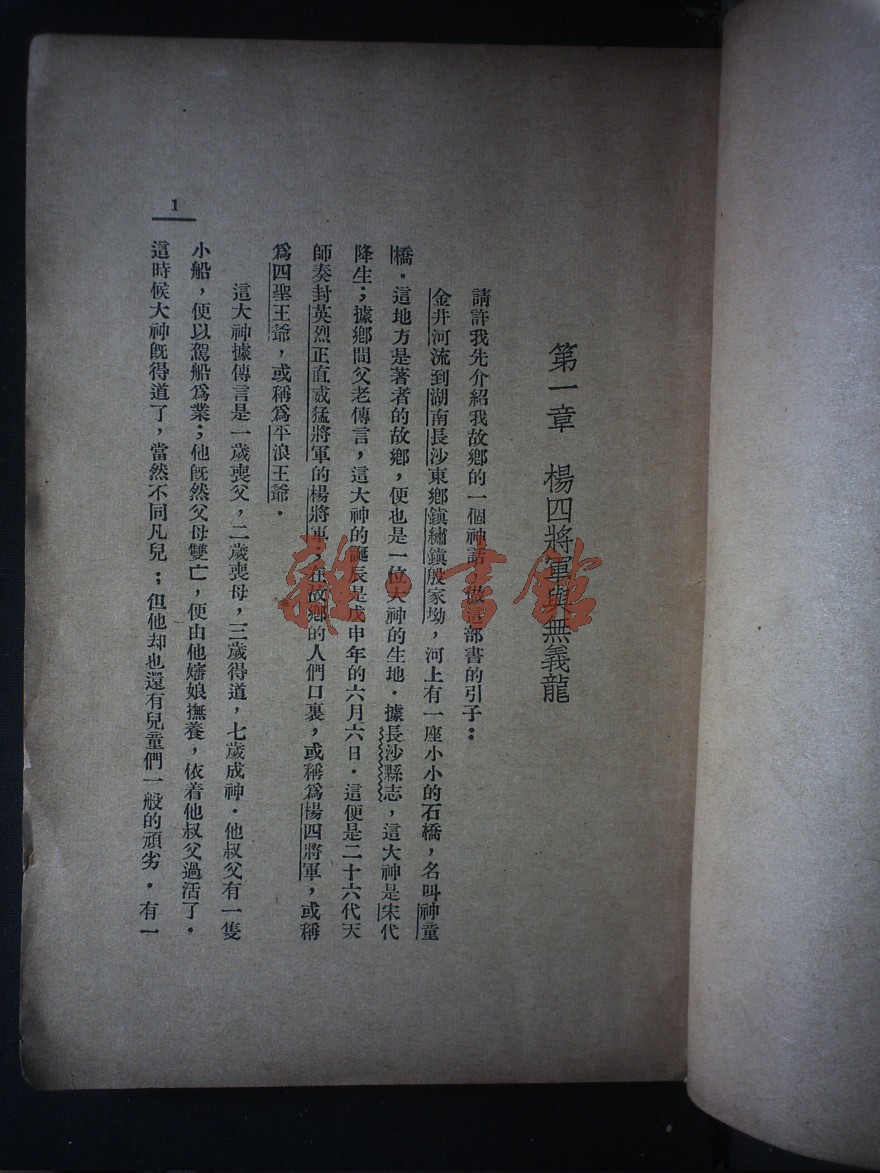 第一章　楊四將軍與無義龍
請許我先介紹我故鄉的一個神話，做這部書的引子：
金井河流到湖南長沙東鄉鎮繡鎮殷家坳，河上有一座小小的石橋，名叫神童
橋．這地方是著者的故鄉，便也是一位大神的生地．據長沙縣志，這大神是宋代
降生；據鄉間父老傳言，這大神的誕辰是戊申年的六月六日．這便是二十六代天
師奏封英烈正直威猛將軍的楊將軍；在故鄉的人們口裏，或稱爲楊四將軍，或稱
爲四聖王爺，或稱爲平浪王爺．
這大神據傳言是一歲喪父，二歲喪母，三歲得道，七歲成神．他叔父有一隻
小船，便以駕船爲業；他既然父母雙亡，便由他嬸娘撫養，依着他叔父過活了．
這時候大神既得道了，當然不同凡兒；但他却也還有兒童們一般的頑劣．有一
1
雜·書館